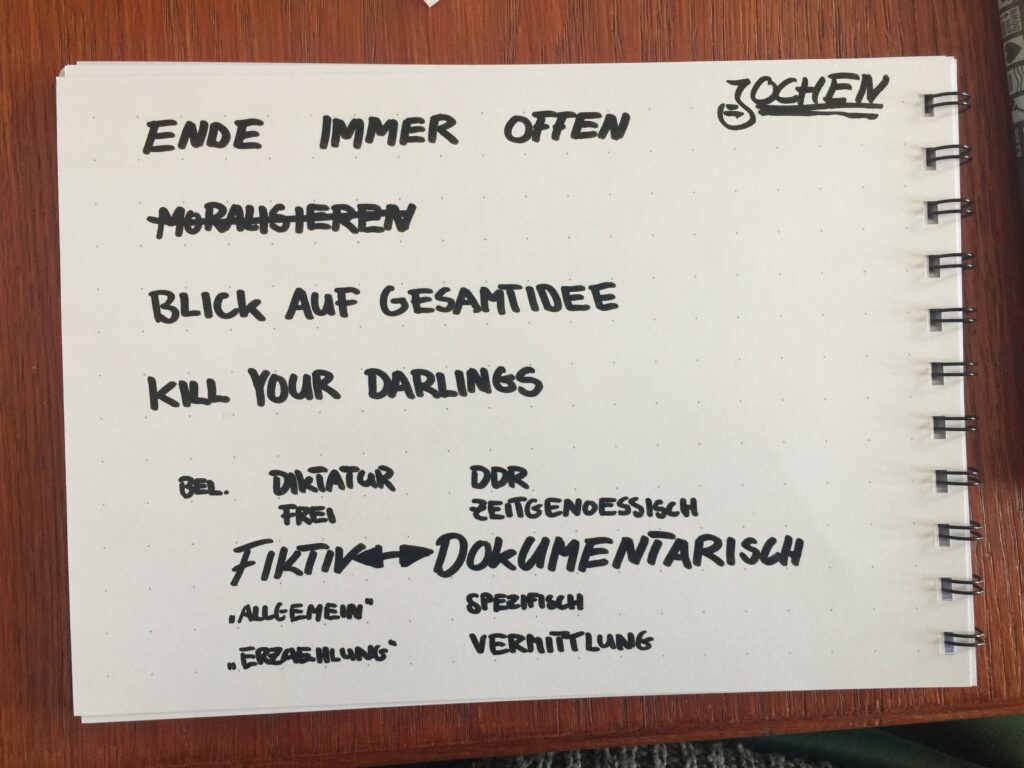 JOCHEN
ENDE IMMER OFFEN
MORALIGIEREN
BLICK AUF GESAMTIDEE
KILL YOUR DARLINGS
BEL. DIKTATUR DDR
FREI ZEITGENOESSISCH
FIKTIV ↔ DOKUMENTARISCH
„ALLGEMEIN“ SPEZIFISCH
„ERZAEHLUNG“ VERMITTLUNG